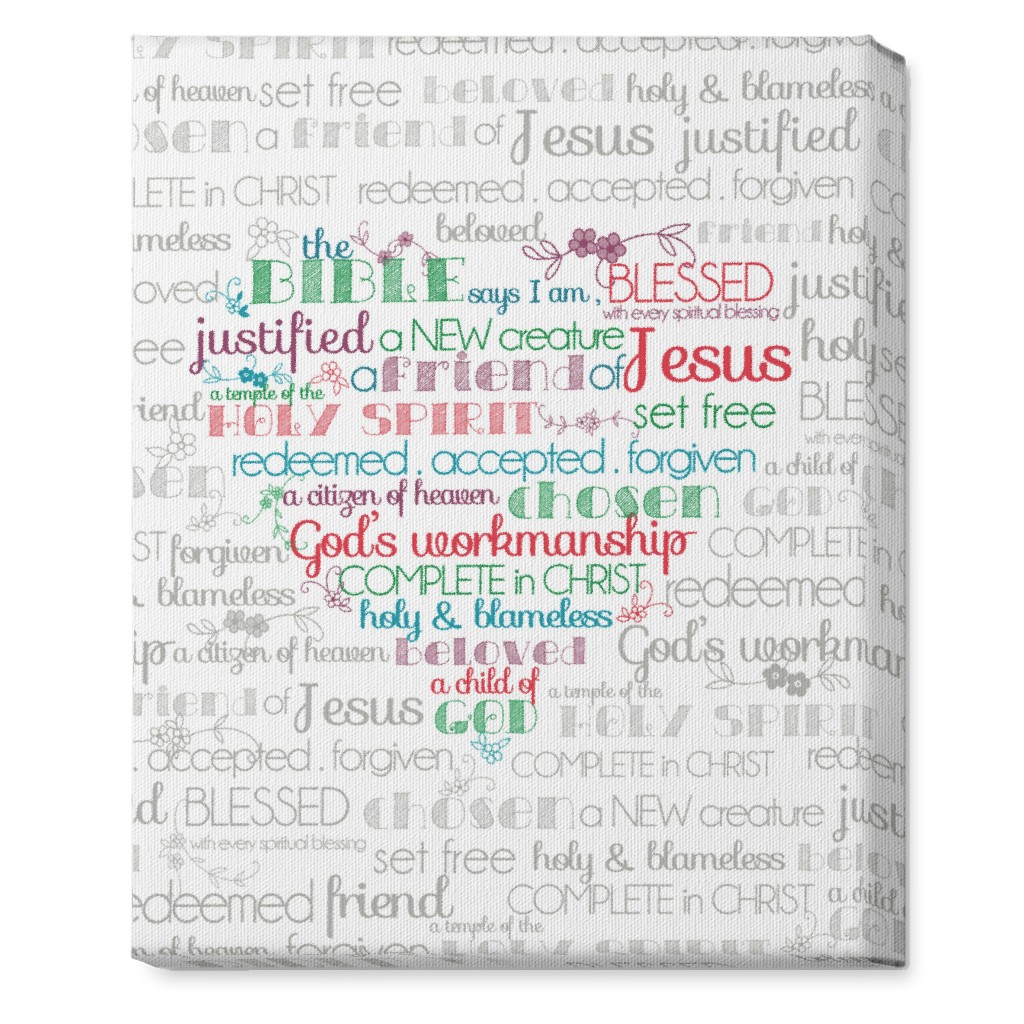 HOLY SPIRIT redeemed . accepted . forgiven
of heaven set free beloved holy & blameless a
a friend of Jesus justified
in CHRIST redeemed . accepted . forgiven
beloved
the friend holy
BIBLE says I am , BLESSED justified
with every spiritual blessing
justified a NEW creature Jesus holy
a friend of
a temple of the
HOLY SPIRIT set free BLESSED
friend
with every
redeemed . accepted . forgiven a child of
a citizen of heaven chosen GOD
forgiven God's workmanship COMPLETE in
COMPLETE in CHRIST redeemed
blameless holy & blameless
a citizen of heaven beloved God's
a child of a temple of the
friend of Jesus GOD HOLY SPIRIT
accepted . forgiven COMPLETE in CHRIST
BLESSED chosen a NEW creature
with every spiritual blessing
set free holy & blameless
friend COMPLETE in CHRIST a child
a temple of the GOD
of heaven forgiven HOLY SPIRIT